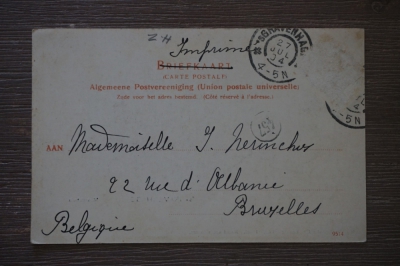 Z.H.
Imprimé
'S GRAVENHAGE
27
JUL
04
4-5N
BRIEFKAART
(CARTE POSTALE)
Algemeene Postvereeniging (Union postale universelle)
Zijde voor het adres bestemd. (Côté réservé à l'adresse.)
-5N
AAN Mademoiselle J. Nerinckx
22 rue d'Albanie
Bruxelles
Belgique